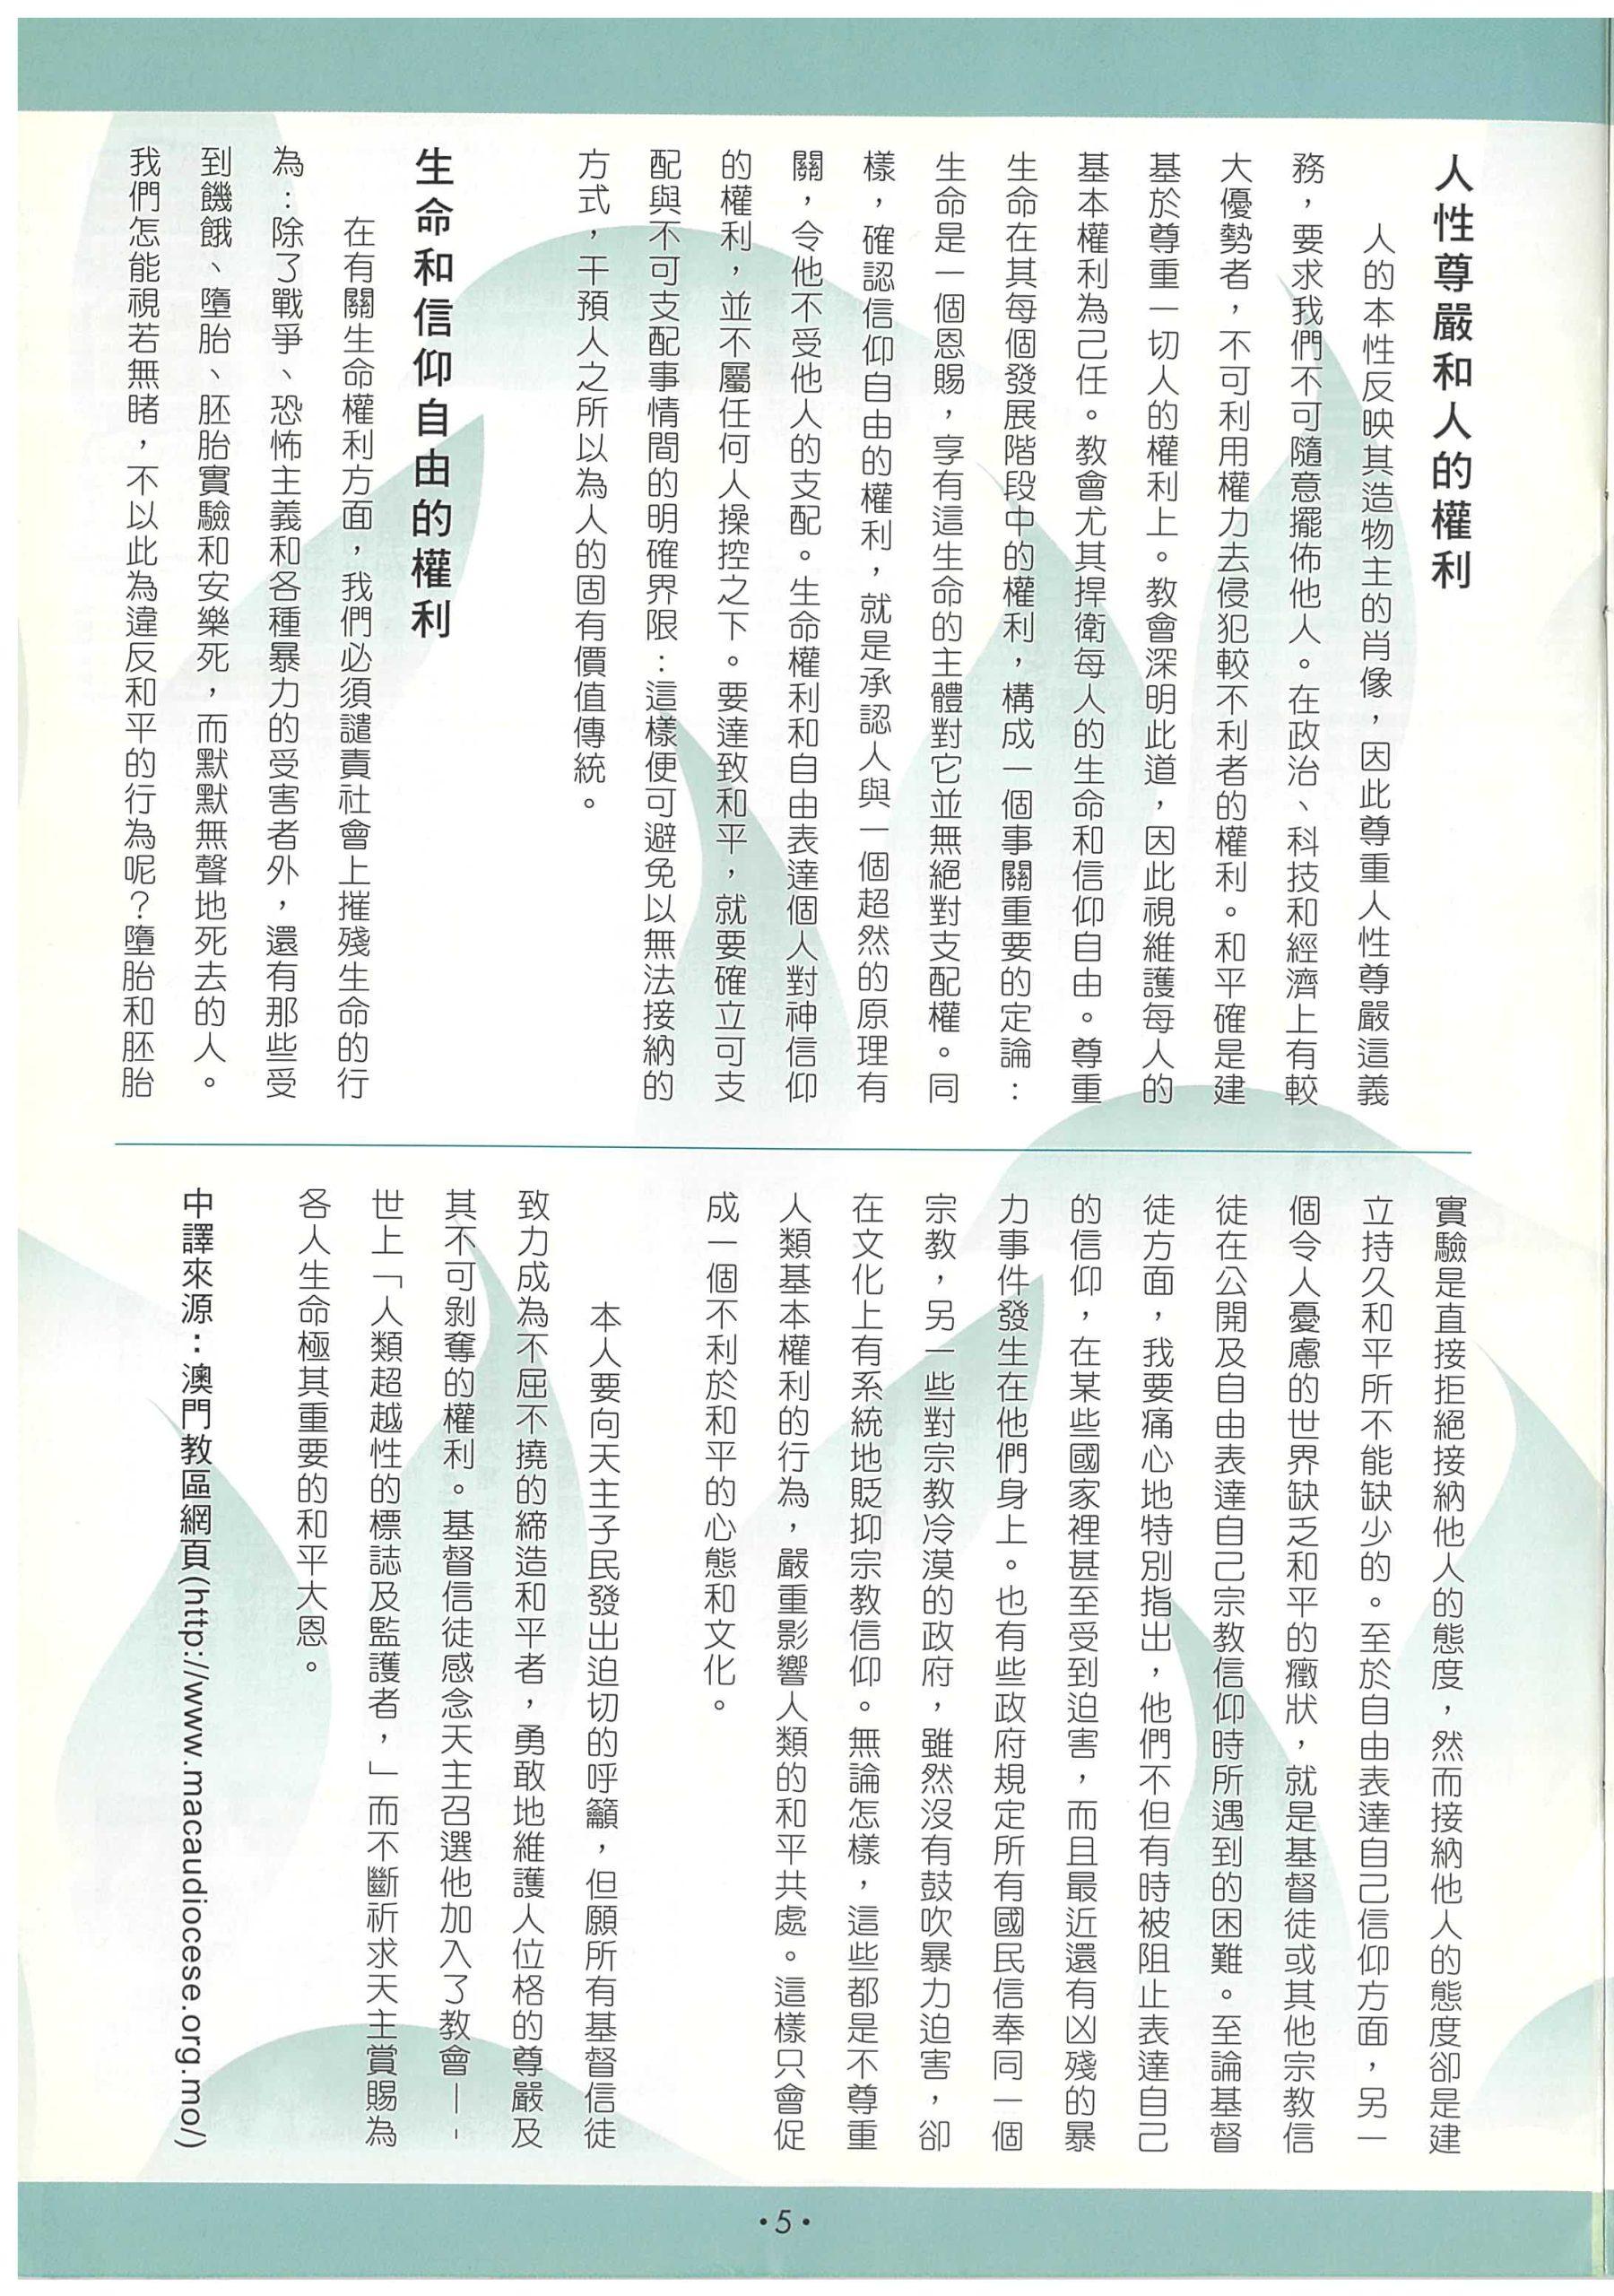 人性尊嚴和人的權利
人的本性反映其造物主的肖像，因此尊重人性尊嚴這義
務，要求我們不可隨意擺佈他人。在政治、科技和經濟上有較
大優勢者，不可利用權力去侵犯較不利者的權利。和平確是建
基於尊重一切人的權利上。教會深明此道，因此視維護每人的
基本權利為己任。教會尤其捍衛每人的生命和信仰自由。尊重
生命在其每個發展階段中的權利，構成一個事關重要的定論：
生命是一個恩賜，享有這生命的主體對它並無絕對支配權。同
樣，確認信仰自由的權利，就是承認人與一個超然的原理有
關，令他不受他人的支配。生命權利和自由表達個人對神信仰
的權利，並不屬任何人操控之下。要達致和平，就要確立可支
配與不可支配事情間的明確界限：這樣便可避免以無法接納的
方式，干預人之所以為人的固有價值傳統。
生命和信仰自由的權利
在有關生命權利方面，我們必須譴責社會上摧殘生命的行
為：除了戰爭、恐怖主義和各種暴力的受害者外，還有那些受
到饑餓、墮胎、胚胎實驗和安樂死，而默默無聲地死去的人。
我們怎能視若無睹，不以此為違反和平的行為呢？墮胎和胚胎
實驗是直接拒絕接納他人的態度，然而接納他人的態度卻是建
立持久和平所不能缺少的。至於自由表達自己信仰方面，另一
個令人憂慮的世界缺乏和平的癥狀，就是基督徒或其他宗教信
徒在公開及自由表達自己宗教信仰時所遇到的困難。至論基督
徒方面，我要痛心地特別指出，他們不但有時被阻止表達自己
的信仰，在某些國家裡甚至受到迫害，而且最近還有凶殘的暴
力事件發生在他們身上。也有些政府規定所有國民信奉同一個
宗教，另一些對宗教冷漠的政府，雖然沒有鼓吹暴力迫害，卻
在文化上有系統地貶抑宗教信仰。無論怎樣，這些都是不尊重
人類基本權利的行為，嚴重影響人類的和平共處。這樣只會促
成一個不利於和平的心態和文化。
本人要向天主子民發出迫切的呼籲，但願所有基督信徒
致力成為不屈不撓的締造和平者，勇敢地維護人位格的尊嚴及
其不可剝奪的權利。基督信徒感念天主召選他加入了教會—-
世上「人類超越性的標誌及監護者，」而不斷祈求天主賞賜為
各人生命極其重要的和平大恩。
中譯來源：澳門教區網頁(http://www.macaudiocese.org.mo/)
•5•